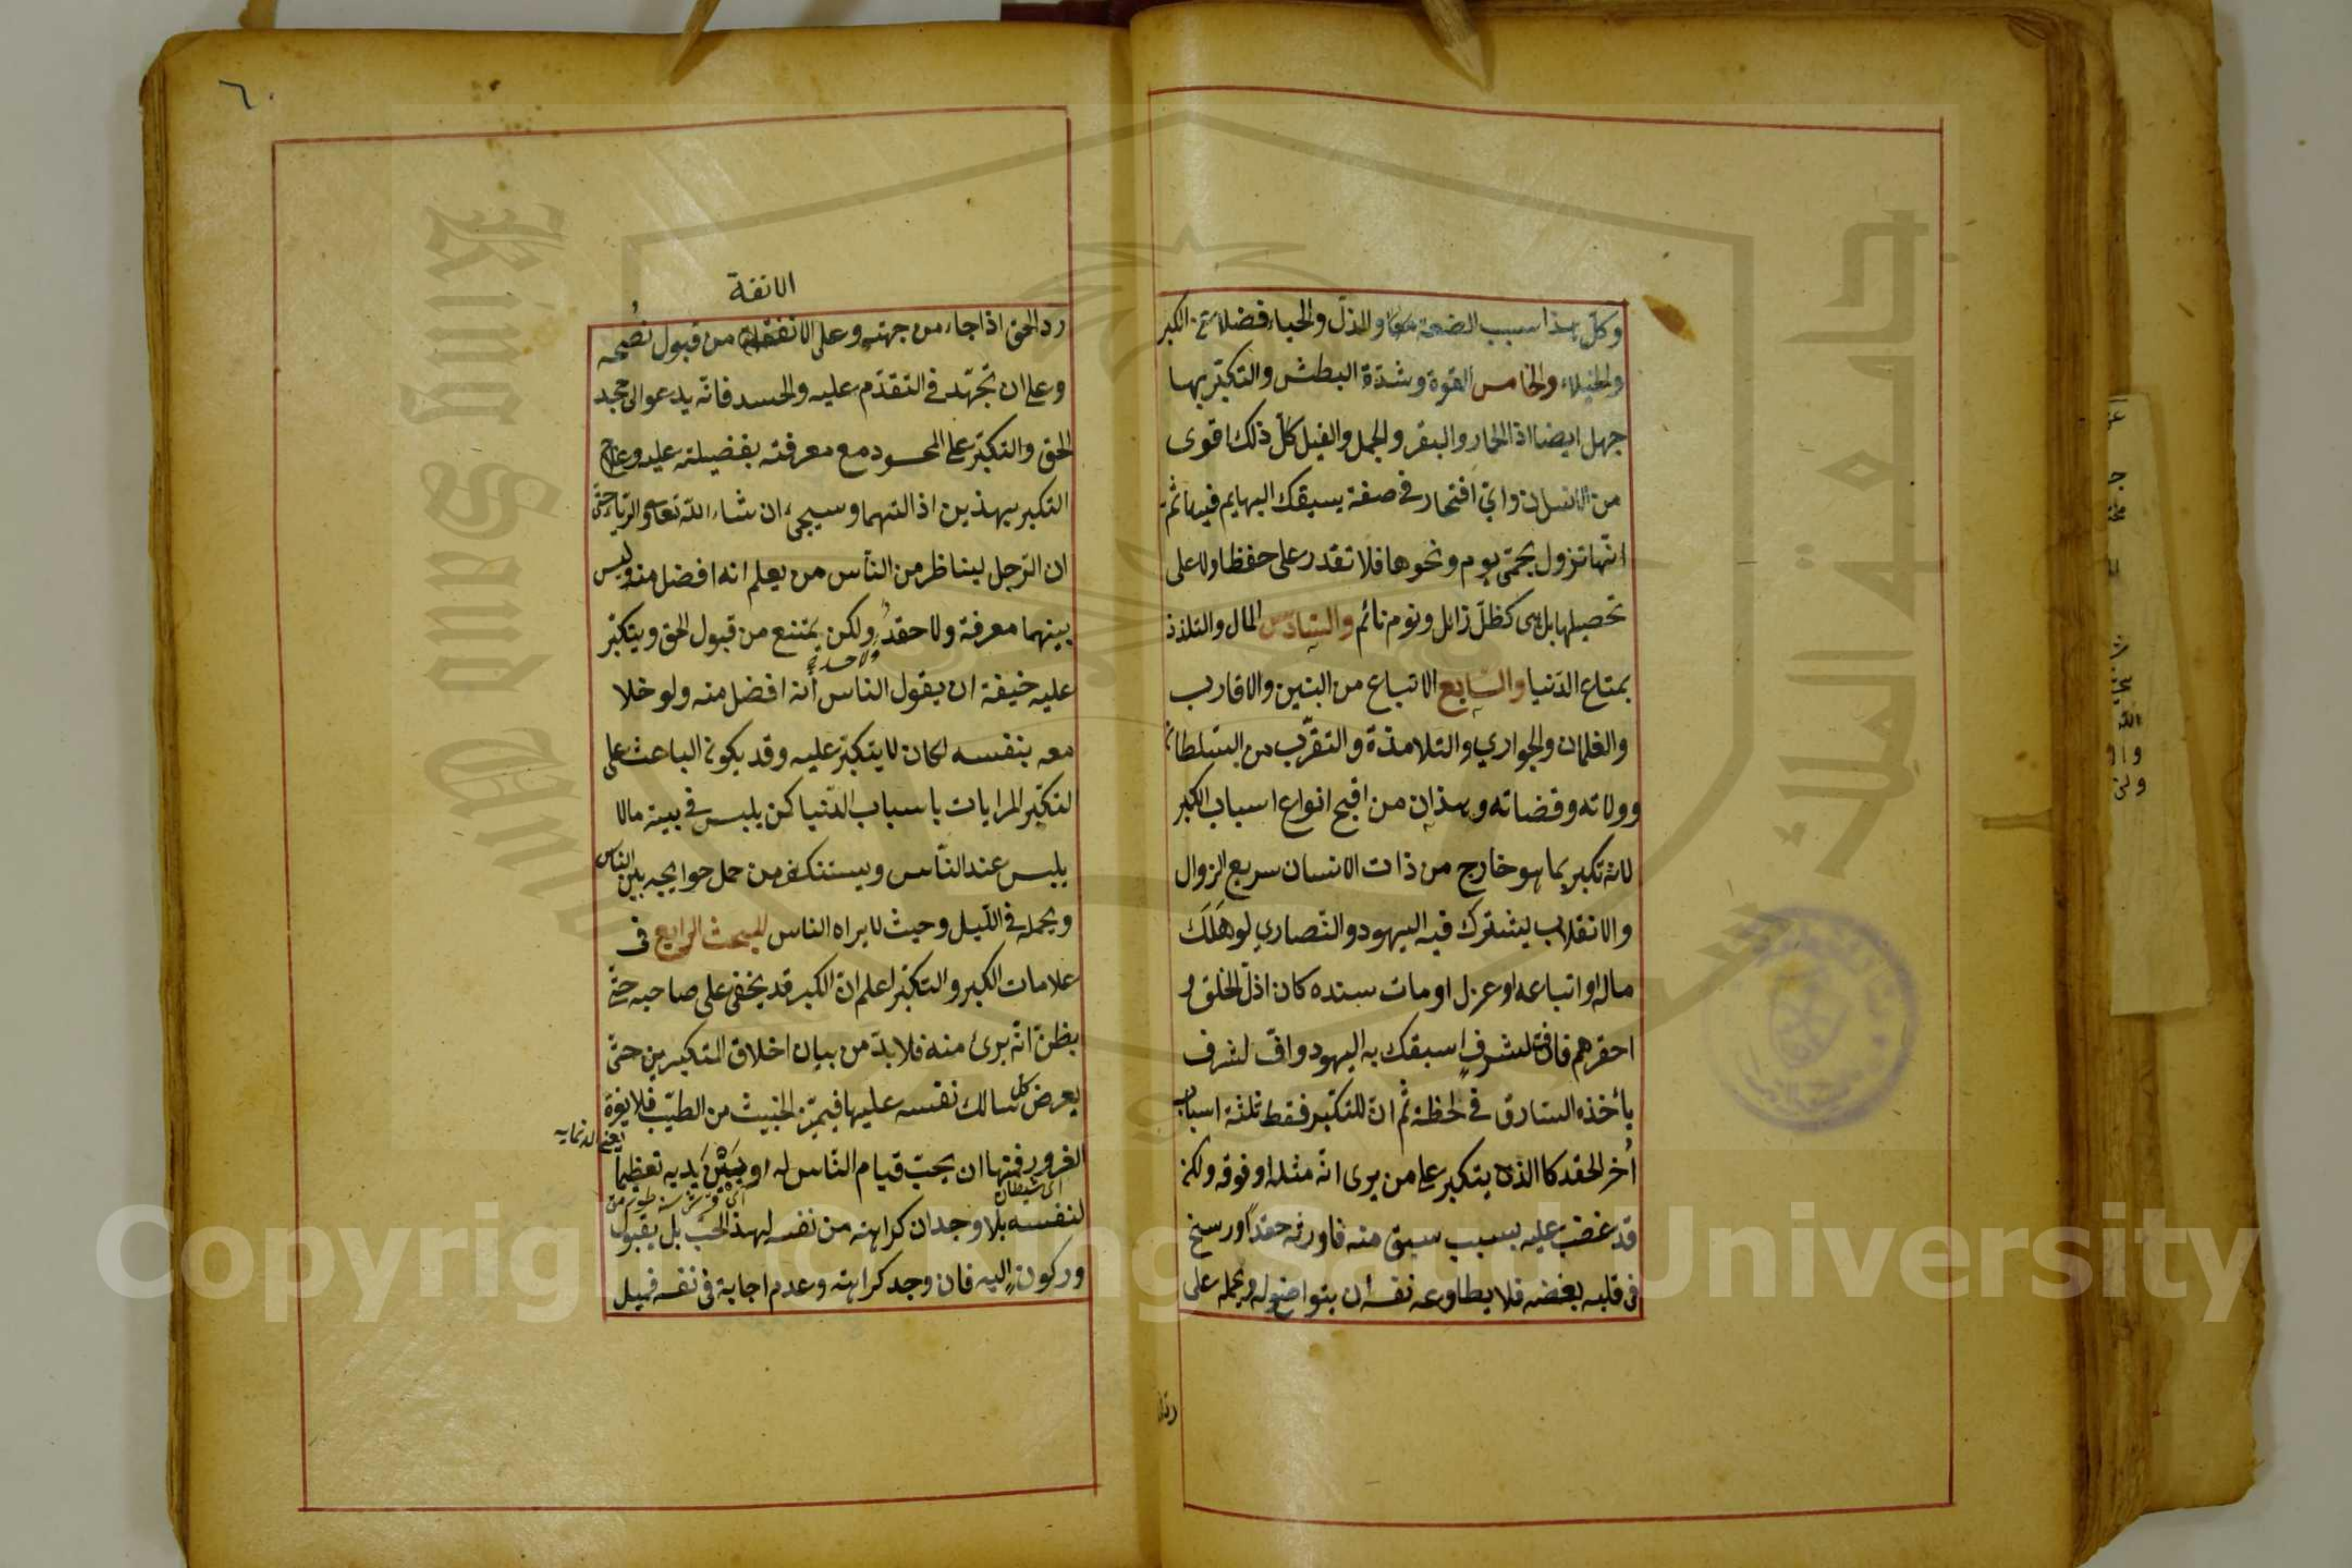 وكلّ هذا سبب الضعة والذلّ والحياء فضلا عن الكبر
والخيلاء والخامس القوة وشدّة البطش والتكبّر بها
جهل ايضا اذ الحمار والبقر والجمل والفيل كلّ ذلك اقوى
من الانسان وايّ افتخار في صفة يسبقك البهايم فيها ثم
انّها تزول بحمّى يوم ونحوها فلا تقدر على حفظها ولا على
تحصيلها بل هي كظلّ زائل ونوم نائم والسّادس المال والتلذذ
بمتاع الدّنيا والسّابع الاتباع من البنين والاقارب
والغلمان والجواري والتلامذة والتقرّب من السّلطان
وولاته وقضاته وهذان من اقبح انواع اسباب الكبر
لانه تكبر بما هو خارج من ذات الانسان سريع الزوال
والانقلاب يشترك فيه اليهود والنّصاري لو هَلَك
ماله او اتباعه او عزل او مات سنده كان اذلّ الخلق و
احقرهم فافّ لشرفٍ اسبقك به اليهود وافّ لشرف
يأخذه السّارق في لحظة ثمّ انّ للتكبّر فقط ثلثة اسباب
اُخر الحقد كالذي يتكبر على من يرى انّه مثله او فوقه ولكن
قد غضب عليه بسبب سبق منه فاورثه حقداً ورسخ
في قلبه بغضه فلا يطاوعه نفسه ان يتواضع له ويحمله على
٦٠
الانفة
رد الحق اذا جاء من جهته وعلى الانفة من قبول نُصحه
وعلى ان تجتهد في التقدّم عليه والحسد فانّه يدعو الى جحد
الحق والتكبّر على المحسود مع معرفته بفضيلته عليه وعلاج
التكبر بهذين اذالتهما وسيجيء ان شاء اللّه تعالى والرياء حتى
ان الرّجل ليناظر من النّاس من يعلم انه افضل منه وليس
بينهما معرفة ولا حقد ولكن يمتنع من قبول الحق ويتكبّر
ولا حسد
عليه خيفة ان يقول الناس أنه افضل منه ولو خلا
معه بنفسه لكان لا يتكبّر عليه وقد يكون الباعث على
التكبّر المرايات باسباب الدّنيا كمن يلبس في بيته مالا
يلبس عند النّاس ويستنكف من حمل حوايجه بين الناس
ويحمله في اللّيل وحيث لا يراه الناس المبحث الرابع في
علامات الكبر والتكبّر اعلم انّ الكبر قد يخفى على صاحبه حتّى
يظنّ انّه برئ منه فلا بدّ من بيان اخلاق المتكبرين حتّى
يعرض كل سالك نفسه عليها فيميّز الخبيث من الطيّب فلا يغرّه
الغرور فمنها ان يحبّ قيام النّاس له او بَيْنَ يَديه تعظيماً
اى شيطان
لنفسه بلا وجدان كراهته من نفسه لهذا الحبّ بل يقبول
وركونٍ اليه فان وجد كراهته وعدم اجابة في نفسه فميل